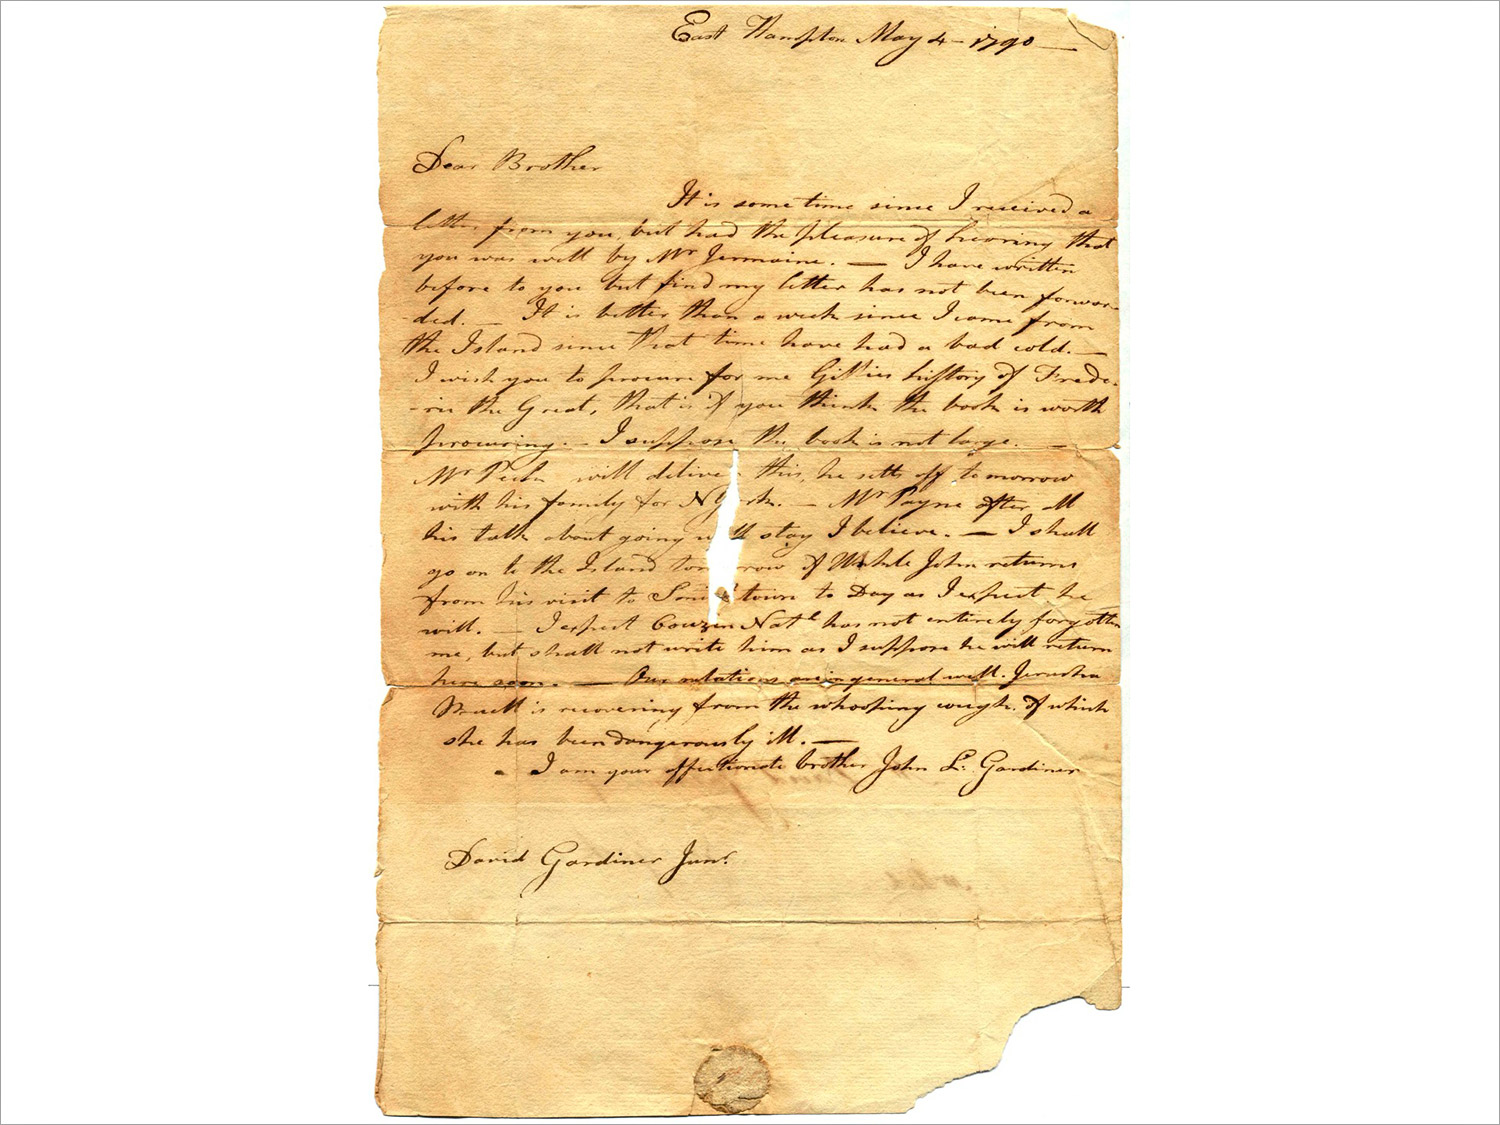 East Hampton May 4 – 1790 —
Dear Brother
It is some time since I received a
letter from you, but had the pleasure of hearing that
you was well by Mr Jermaine. — I have written
before to you but find my letter has not been forwar-
-ded. — It is better than a week since I came from
the Island since that time have had a bad cold. —
I wish you to procure for me Gillies history of Frede-
-ric the Great, that is if you think the book is worth
procuring. – I suppose the book is not large. —
Mr will deliver this, he setts off tomorrow
with his family for N York. – Mr Payne after all
his talk about going will stay I believe. — I shall
go on to the Island tomorrow if John returns
from his visit to Smithtown to Day as I expect he
will. — I expect Couzen Natl has not entirely forgotten
me, but shall not write him as I suppose he will return
here soon. — Our relations are in general well. Jerusha
is recovering from the whooping cough. of which
she has been dangerously ill. —
I am your affectionate brother John L. Gardiner
David Gardiner Junr.